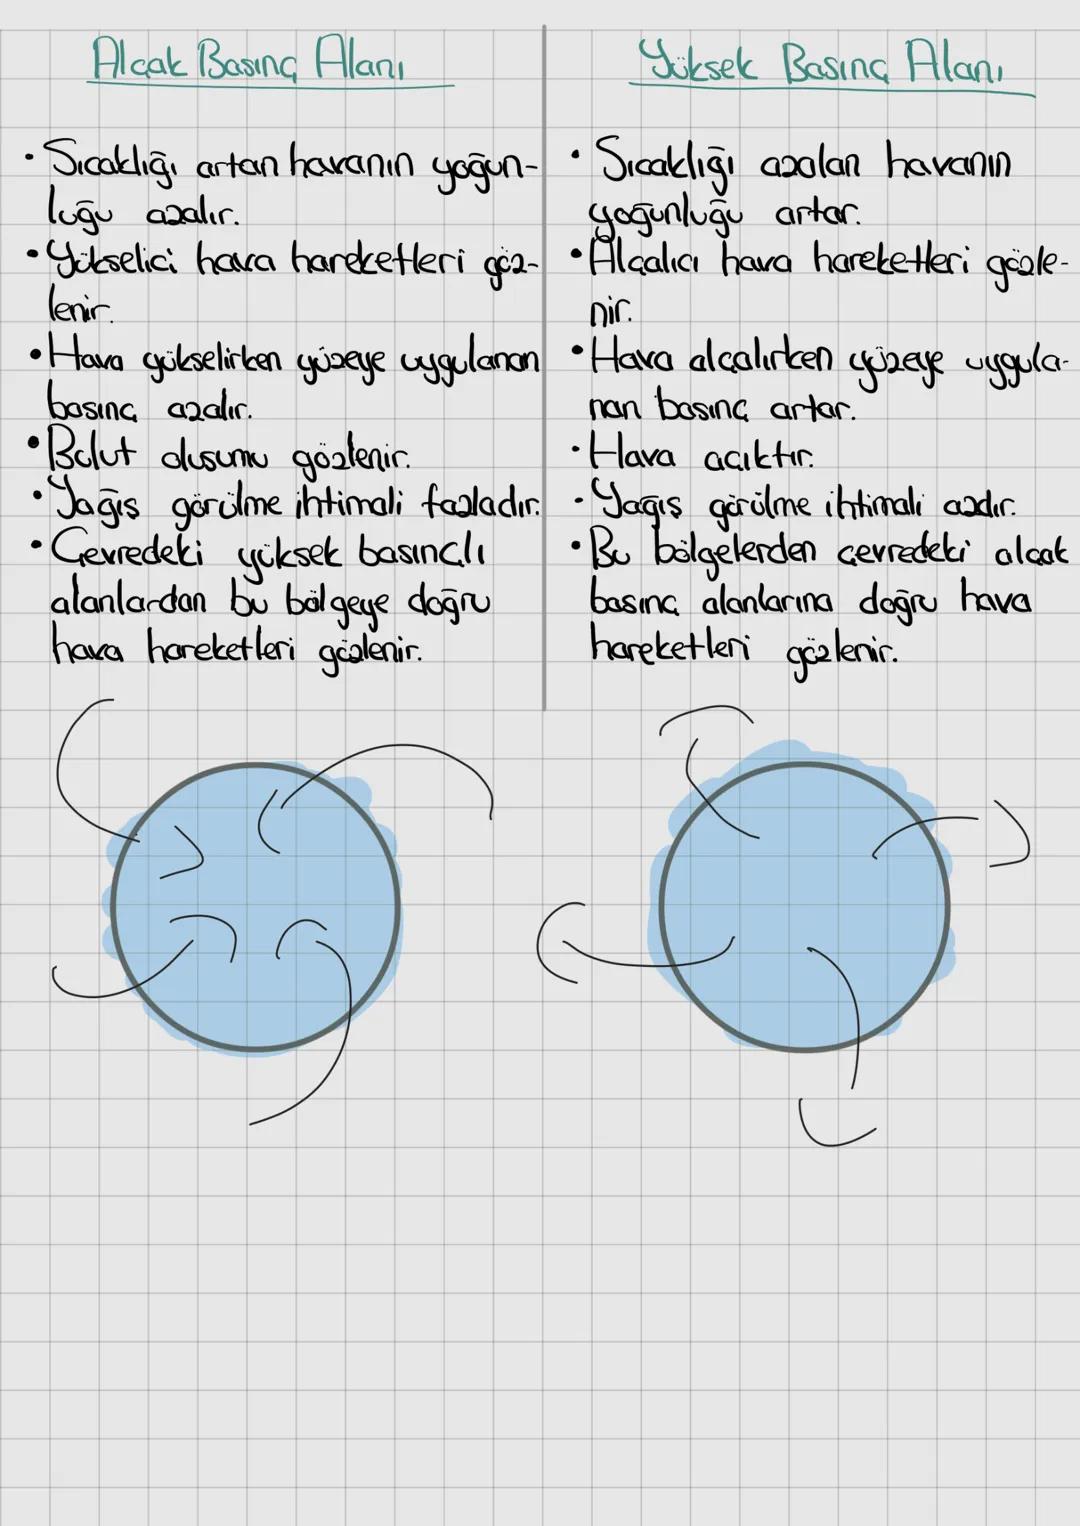 Alçak Basınç Alanı
• Sıcaklığı artan havanın yoğun-
luğu azalır.
• Yükselici hava hareketleri göz-
lenir.
• Hava yükselirken yüzeye uygulanan
basınç azalır.
• Bulut oluşumu gözlenir.
• Yağış görülme ihtimali fazladır.
• Çevredeki yüksek basınçlı
alanlardan bu bölgeye doğru
hava hareketleri gözlenir.
Yüksek Basınç Alanı
• Sıcaklığı azalan havanın
yoğunluğu artar.
• Alçalıcı hava hareketleri gözle-
nir.
• Hava alçalırken yüzeye uygula-
nan basınç artar.
• Hava açıktır.
• Yağış görülme ihtimali azdır.
• Bu bölgelerden çevredeki alçak
basınç alanlarına doğru hava
hareketleri gözlenir.